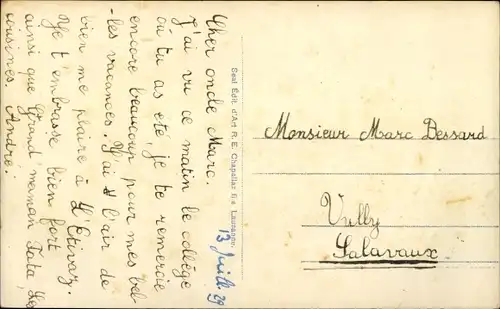 Cher oncle Marc.
J'ai vu ce matin le collège
où tu as été, je te remercie
encore beaucoup pour mes bel
-les vacances. J'ai l'air de
bien me plaire à L'Etivaz.
Je t'embrasse bien fort
ainsi que Grand'maman Tata, les
cousines. André.
13 Juill. 29
Seal Édit. d'Art R. E. Chapallaz fils Lausanne.
Monsieur Marc Bessard
Vully
Salavaux